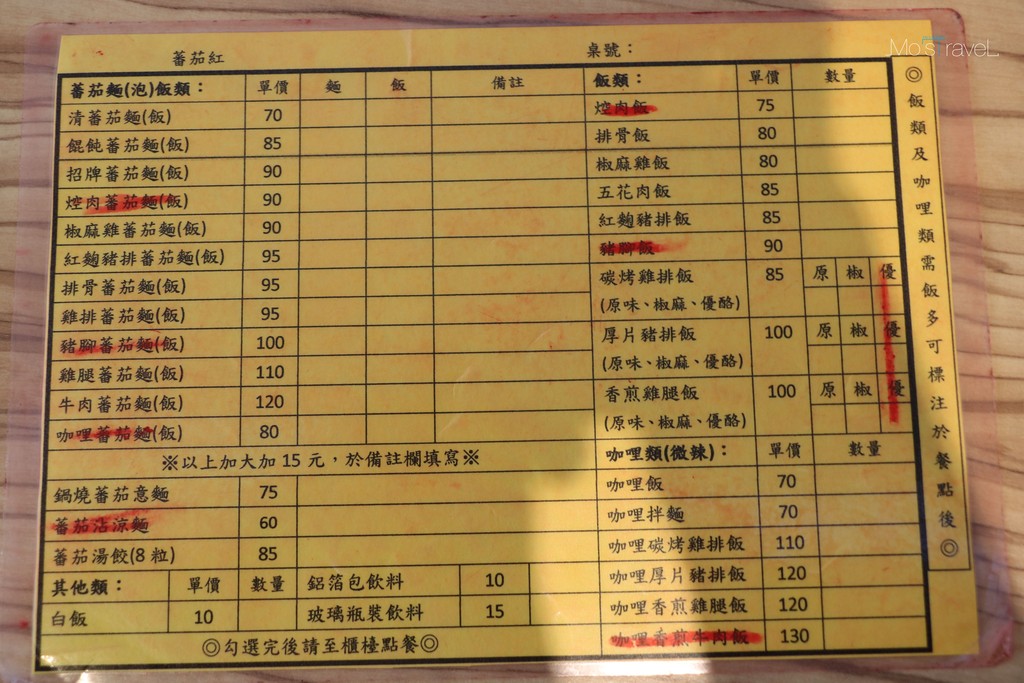 Mo'sTraveL
蕃茄紅 桌號：
蕃茄麵(泡)飯類： 單價 麵 飯 備註
清蕃茄麵(飯) 70
餛飩蕃茄麵(飯) 85
招牌蕃茄麵(飯) 90
焢肉蕃茄麵(飯) 90
椒麻雞蕃茄麵(飯) 90
紅麴豬排蕃茄麵(飯) 95
排骨蕃茄麵(飯) 95
雞排蕃茄麵(飯) 95
豬腳蕃茄麵(飯) 100
雞腿蕃茄麵(飯) 110
牛肉蕃茄麵(飯) 120
咖哩蕃茄麵(飯) 80
※以上加大加 15 元，於備註欄填寫※
鍋燒蕃茄意麵 75
蕃茄沾涼麵 60
蕃茄湯餃(8 粒) 85
其他類： 單價 數量 鋁箔包飲料 10
白飯 10 玻璃瓶裝飲料 15
◎勾選完後請至櫃檯點餐◎
飯類： 單價 數量
焢肉飯 75
排骨飯 80
椒麻雞飯 80
五花肉飯 85
紅麴豬排飯 85
豬腳飯 90
碳烤雞排飯 85 原 椒 優
(原味、椒麻、優酪)
厚片豬排飯 100 原 椒 優
(原味、椒麻、優酪)
香煎雞腿飯 100 原 椒 優
(原味、椒麻、優酪)
咖哩類(微辣)： 單價 數量
咖哩飯 70
咖哩拌麵 70
咖哩碳烤雞排飯 110
咖哩厚片豬排飯 120
咖哩香煎雞腿飯 120
咖哩香煎牛肉飯 130
◎飯類及咖哩類需飯多可標注於餐點後◎